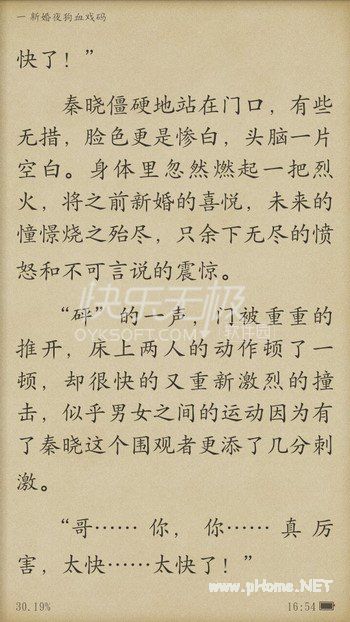 一 新婚夜狗血戏码
快了！”
秦晓僵硬地站在门口，有些
无措，脸色更是惨白，头脑一片
空白。身体里忽然燃起一把烈
火，将之前新婚的喜悦，未来的
憧憬烧之殆尽，只余下无尽的愤
怒和不可言说的震惊。
快乐无极
OYKSOFT.COM 软件园
“砰”的一声，门被重重的
推开，床上两人的动作顿了一
顿，却很快的又重新激烈的撞
击，似乎男女之间的运动因为有
了秦晓这个围观者更添了几分刺
激。
“哥……你，你……真厉
害，太快……太快了！”
www.pHome.NET
30.19%
16:54